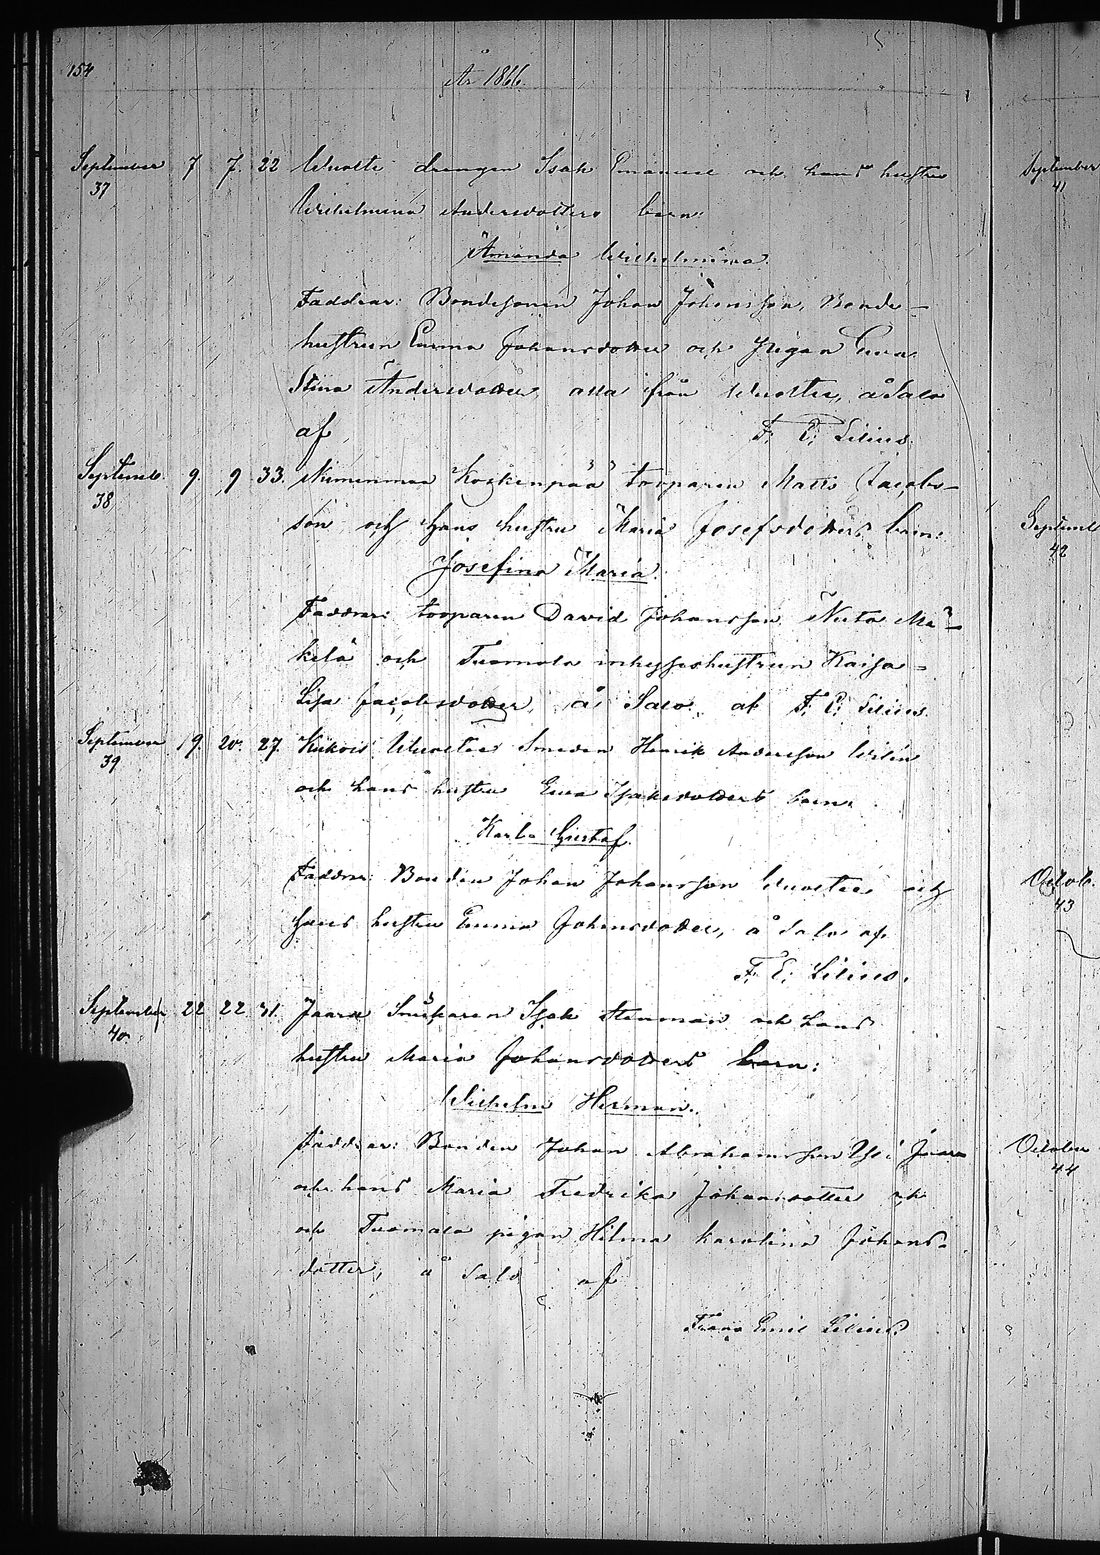 154
År 1866
September 7 7. 22 Wuolti drengen Isak Emanuel och hans hustru
37
Wilhelmina Andersdotters barn:
Amanda Wilhelmina.
Faddrar: Bondesonen Johan Johansson, Bonde-
hustrun Emma Johansdotter och pigan Eva
Stina Andersdotter, alla från Wuoltee, å Salo
af F. E. Lilius.
Septemb. 9. 9 33. Nimenmaa Koskenpää torparen Matts Jacobs-
38
son och hans hustru Maria Josefsdotters barn:
Josefina Maria.
Faddrar: torparen David Johansson Mä-
kelä och Tuomola inhyseshustrun Kaisa-
Lisa Jacobsdotter, å Salo. af F. E. Lilius.
September 19. 20. 27. Wuoltee Smeden Henrik Andersson
39
och hans hustru Eva Isaksdotters barn:
Karl Gustaf.
Faddrar: Bonden Johan Johansson Wuoltee och
hans hustru Emma Johansdotter, å Salo af
F. E. Lilius.
September 22 22 31. Jaara Isak Stenman och hans
40
hustru Maria Johansdotters barn:
Wilhelm Herman.
Faddrar: Bonden Johan Abrahamsson Yli Jaara
och hans Maria Fredrika Johansdotter och
och Tuomola pigan Hilma Karolina Johans-
dotter, å Salo af
Frans Emil Lilius.
September
41
Septemb
42
Octob.
43
October
44